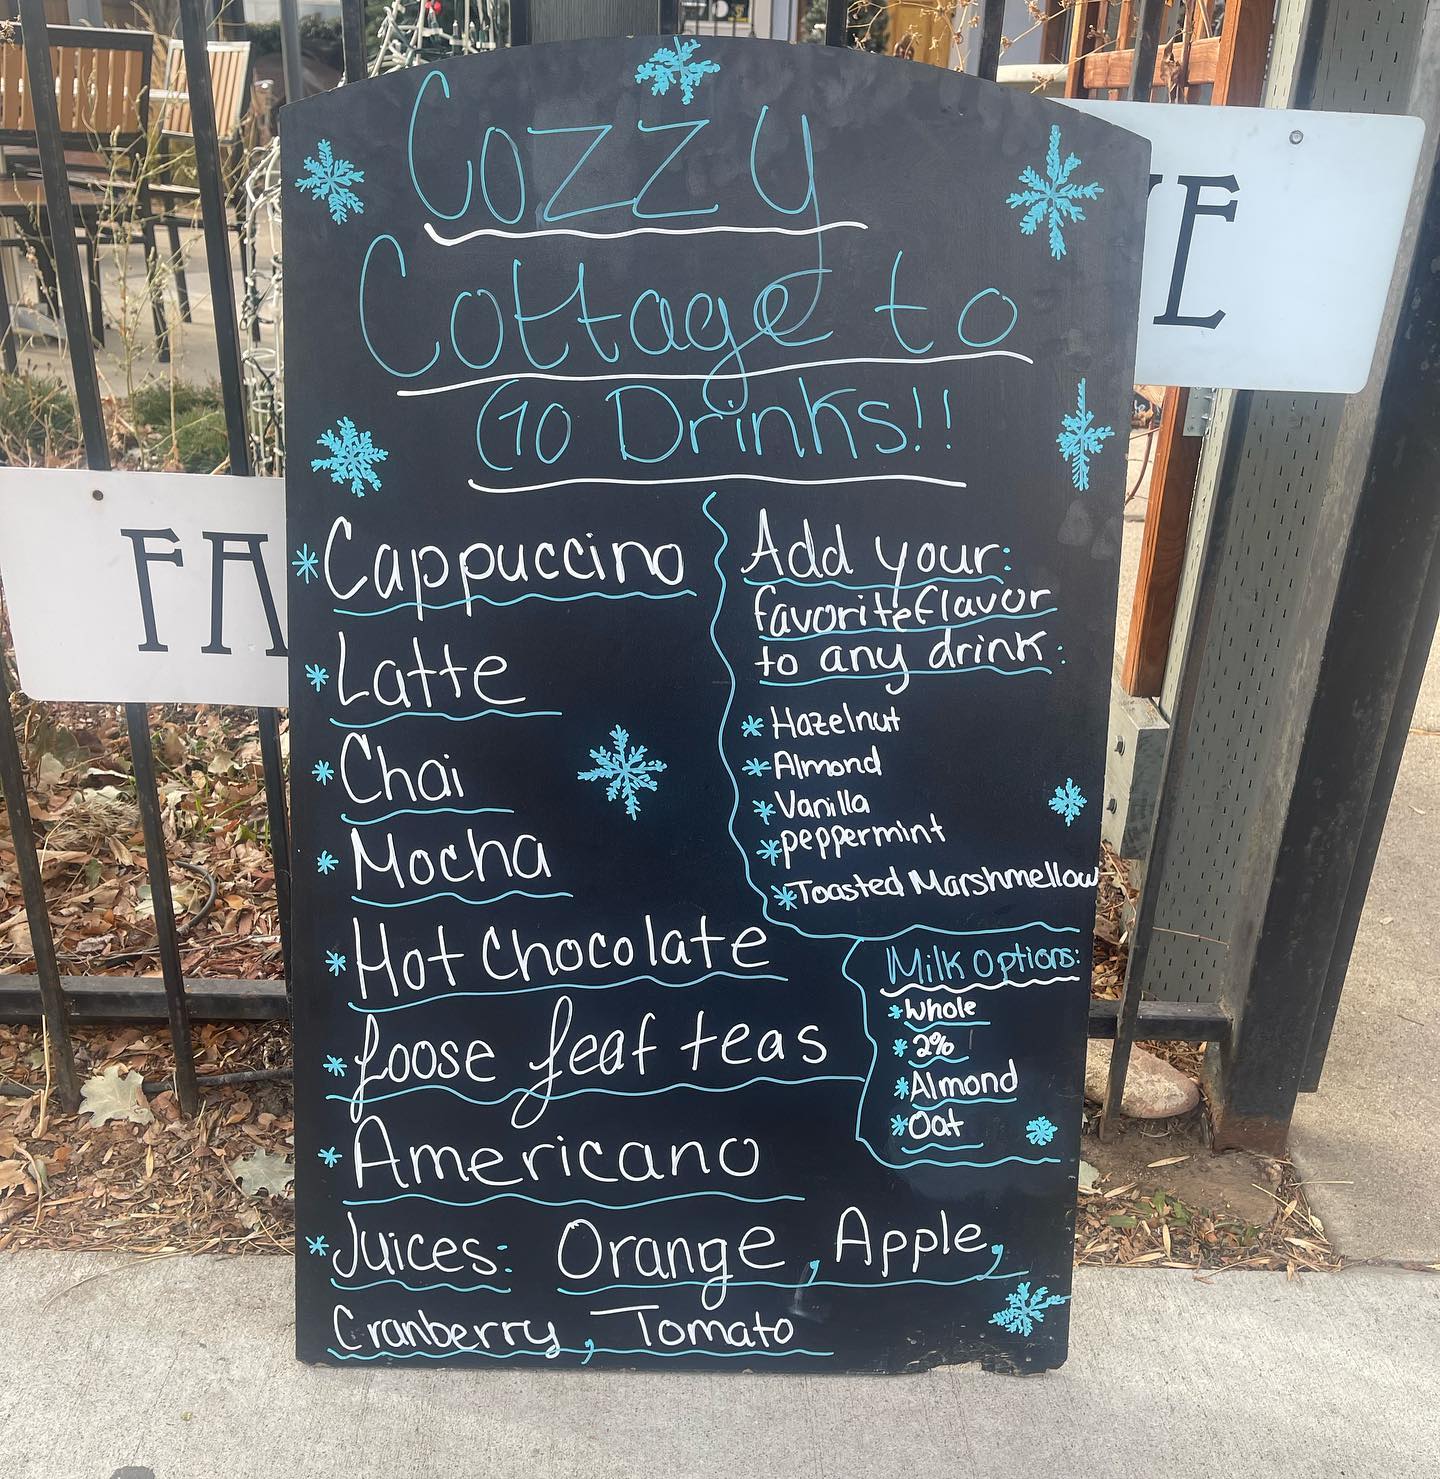 Cozzy
Cottage to
go Drinks!!
* Cappuccino
* Latte
* Chai
* Mocha
* Hot Chocolate
* Loose Leaf teas
* Americano
* Juices: Orange, Apple,
Cranberry, Tomato
Add your:
favorite flavor
to any drink:
* Hazelnut
* Almond
* Vanilla
* peppermint
* Toasted Marshmellow
Milk Options:
* Whole
* 2%
* Almond
* Oat
FA
VE